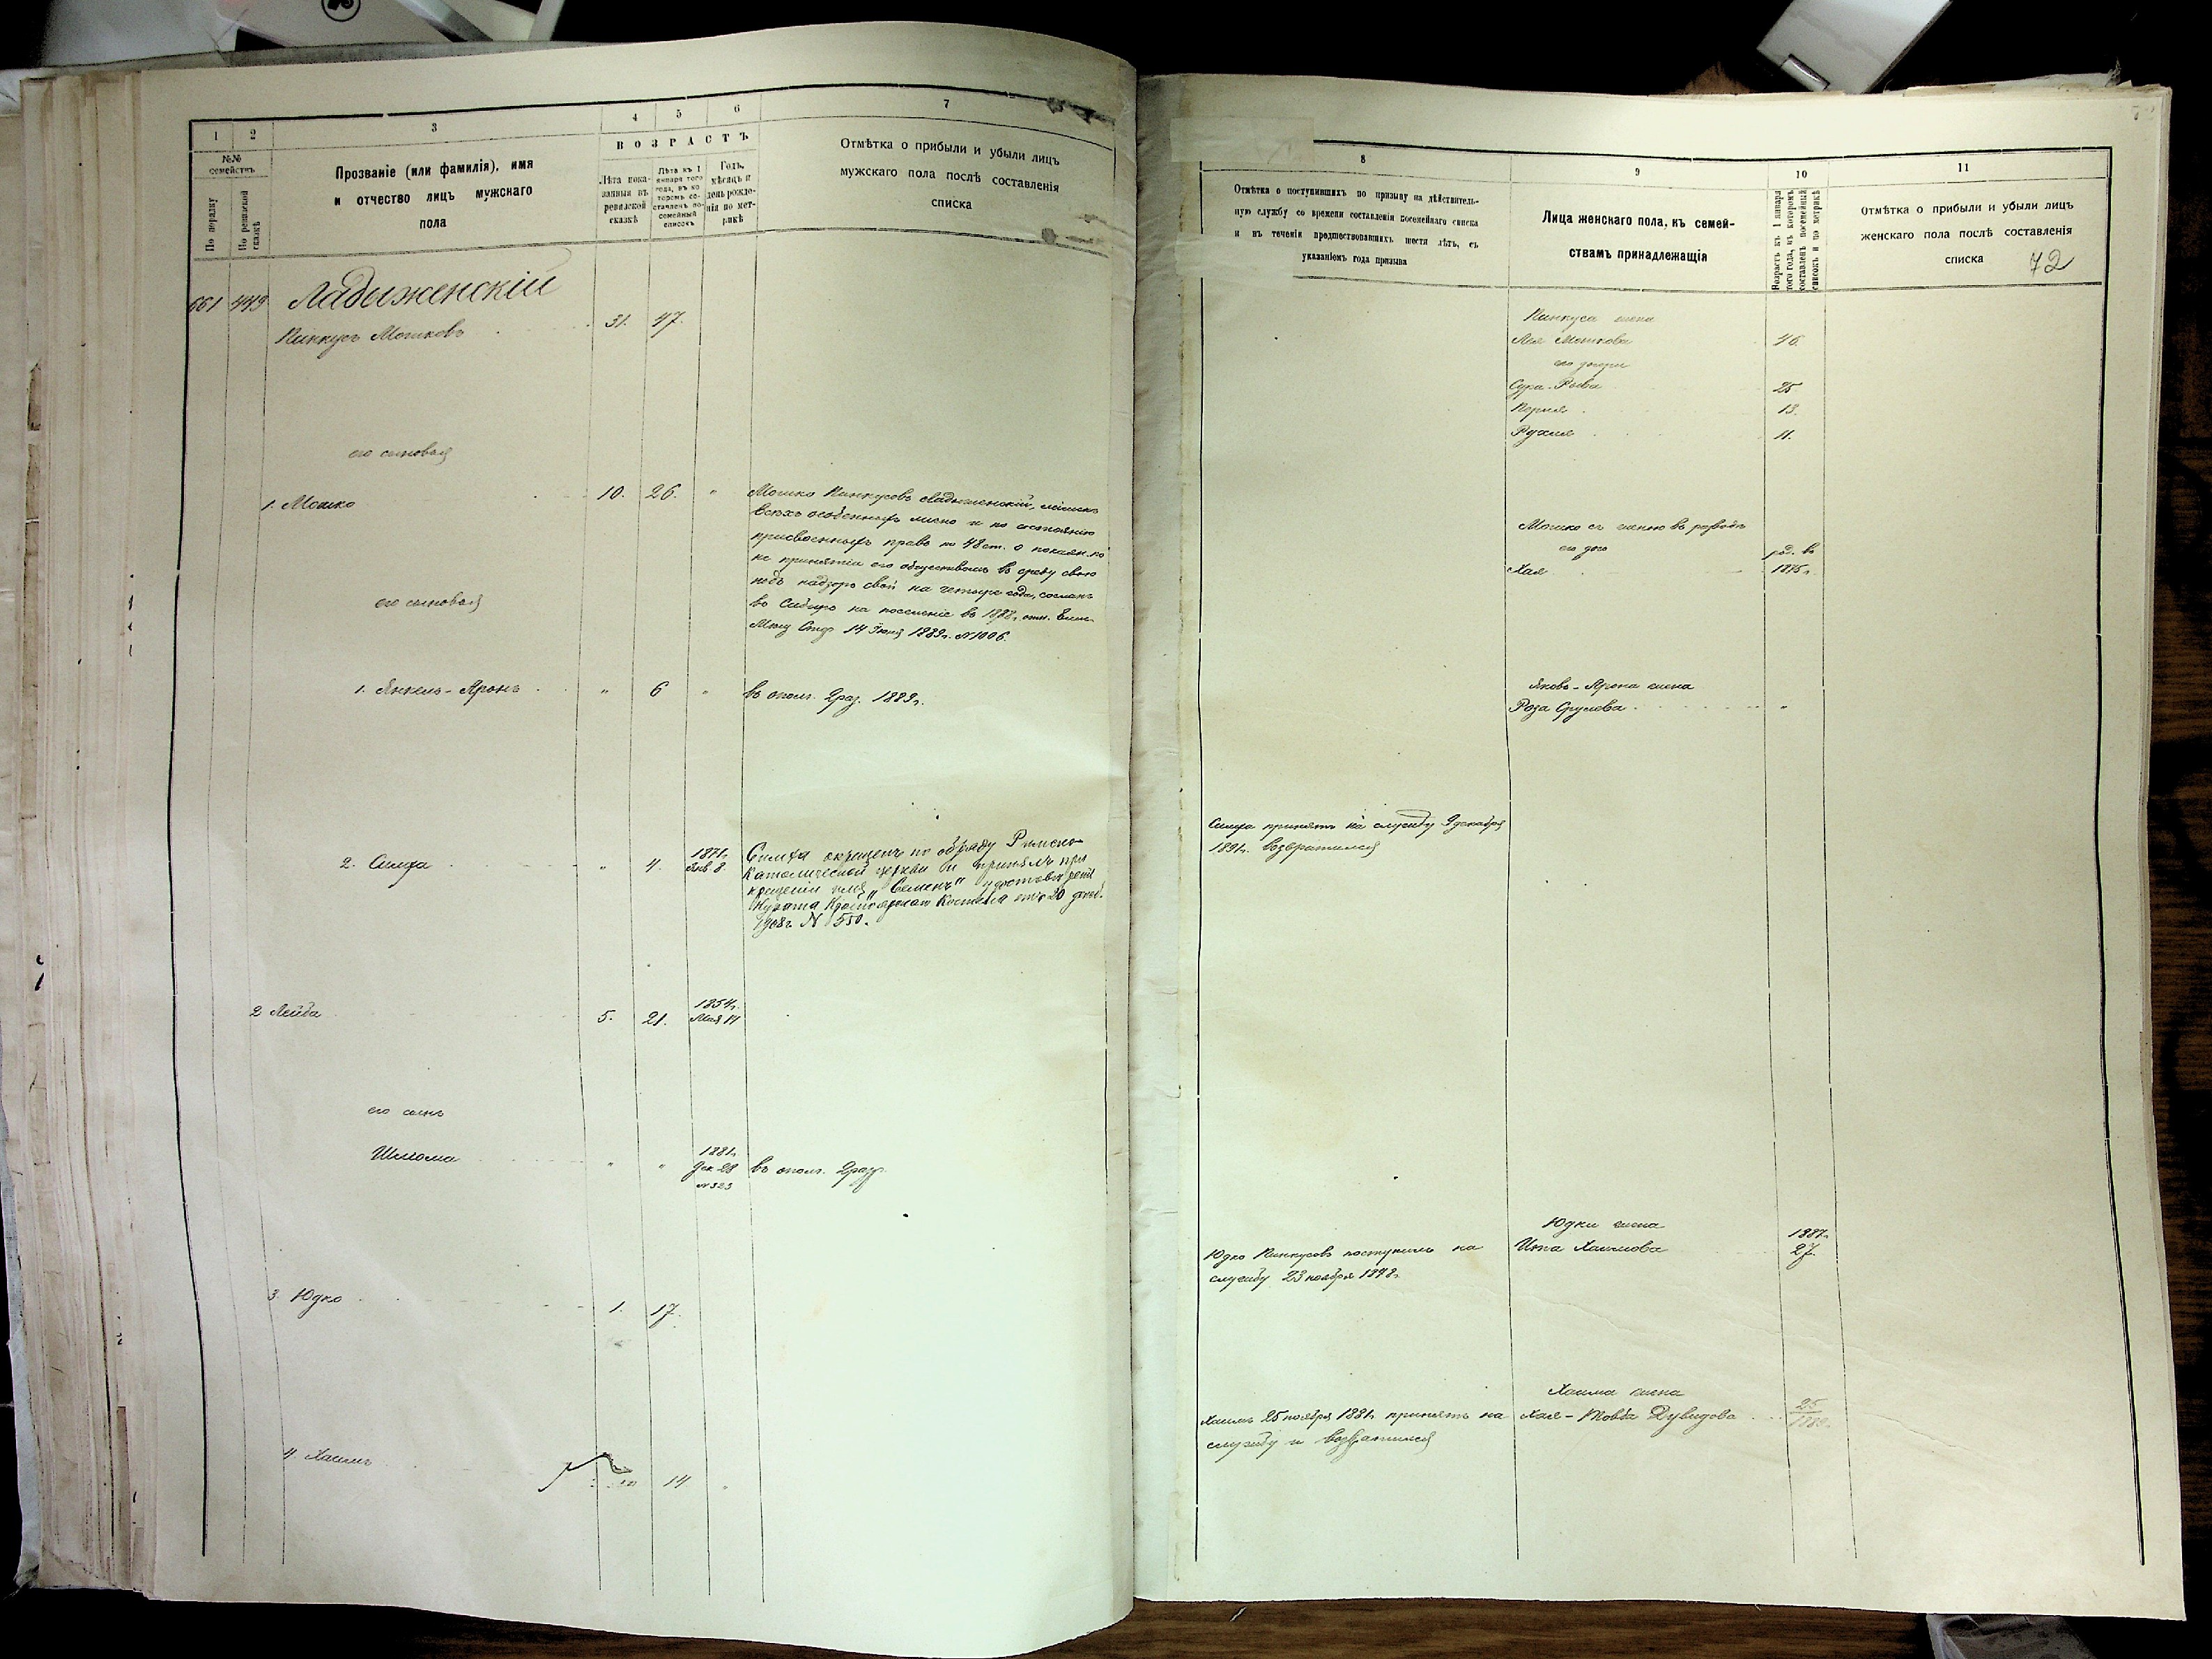 1 2 3 4 5 6 7
№№ семействъ
По порядку
По ревизской сказкѣ
Прозваніе (или фамилія), имя
и отчество лицъ мужскаго
пола
ВОЗРАСТЪ
Лѣта пока-
занныя въ
ревизской
сказкѣ
Лѣта къ 1
января того
года, въ ко-
торомъ со-
ставленъ по-
семейный
списокъ
Годъ,
мѣсяцъ и
день рожде-
нія по мет-
рикѣ
Отмѣтка о прибыли и убыли лицъ
мужскаго пола послѣ составленія
списка
661 449 Ладыженскій
Пинкусъ Мошковъ 31. 47.
его сыновья
1. Мошко 10. 26. "
Мошко Пинкусовъ Ладыженскій, лишенъ
всѣхъ особенныхъ лично и по состоянію
присвоенныхъ правъ по 48 ст. о наказан. по
не принятіи его обществомъ въ среду свою
подъ надзоръ свой на четыре года, сосланъ
въ Сибирь на поселеніе въ 1882 г. отн.
14 Іюня 1883 г. №1006.
его сыновья
1. Янкель-Аронъ " 6 " въ опол. 2 раз. 1889 г.
2. Симха " 4. 1871 г. Янв. 8.
Симха окрещенъ по обряду Римско-
Католической церкви и принялъ при
крещеніи имя „Семенъ" удостовѣреніе
Курата Красноярскаго Костела отъ 20 декаб.
1908 г. № 550.
2 Лейба 5. 21. 1854 г. Мая 14
его сынъ
Шлома " " 1881 г. Дек 28 №323 въ опол. 2 разр.
3. Юдко 1. 17.
4. Хаимъ 14. "
8 9 10 11
Отмѣтка о поступившихъ по призыву на дѣйствитель-
ную службу со времени составленія посемейнаго списка
и въ теченіи предшествовавшихъ шести лѣтъ, съ
указаніемъ года призыва
Лица женскаго пола, къ семей-
ствамъ принадлежащія
Возрастъ къ 1 января
того года, въ которомъ
составленъ посемейный
списокъ и по метрикѣ
Отмѣтка о прибыли и убыли лицъ
женскаго пола послѣ составленія
списка
72
Пинкуса жена
Лея Мошкова 46.
его дочери
Сура-Ривка 25
Перля 13.
Рухля 11.
Мошко съ женою въ разводѣ
его дочь род. въ
Хая 1875 г.
Яковъ-Арона жена
Роза Срулева "
Симха принятъ на службу 9 декабря
1891 г. Возвратился
Юдки жена 1887 г.
Ита Хаимова 27.
Юдко Пинкусовъ поступилъ на
службу 23 ноября 1878 г.
Хаима жена
Хая-Товба Дувидова 25
Хаимъ 25 ноября 1881 г. принятъ на
службу и возвратился